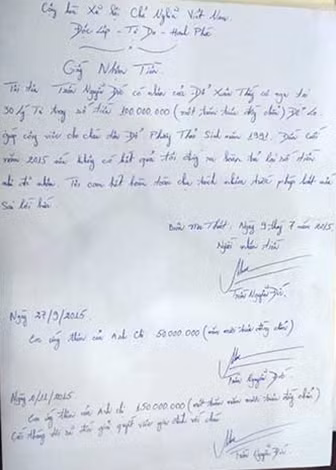 Cộng hòa Xã Hội Chủ Nghĩa Việt Nam
Độc Lập - Tự Do - Hạnh Phúc
Giấy Nhận Tiền
Tôi tên Trần Nguyễn Đức có nhận của Đỗ Xuân
30 Lý Tự Trọng số tiền 100.000.000 (một trăm triệu đồng chẵn) Để Lo
công việc cho cháu Đỗ Sinh năm 1991. Đến Cuối
năm 2015 nếu không có kết quả tôi sẽ hoàn trả lại số tiền
đã nhận. Tôi cam kết hoàn toàn chịu trách nhiệm trước pháp luật nếu
Sai lời hứa.
Buôn Ma Thuột, Ngày 9 thg 7 năm 2015
Người nhận tiền
Trần Nguyễn Đức.
Ngày 27/9/2015.
Em ứng thêm của Anh Chị 50.000.000 (năm mươi triệu đồng chẵn)
Trần Nguyễn Đức.
Ngày 1/11/2015
Em ứng thêm của Anh chị 150.000.000 (một trăm năm mươi triệu đồng chẵn)
giải quyết việc gia đình
Trần Nguyễn Đức